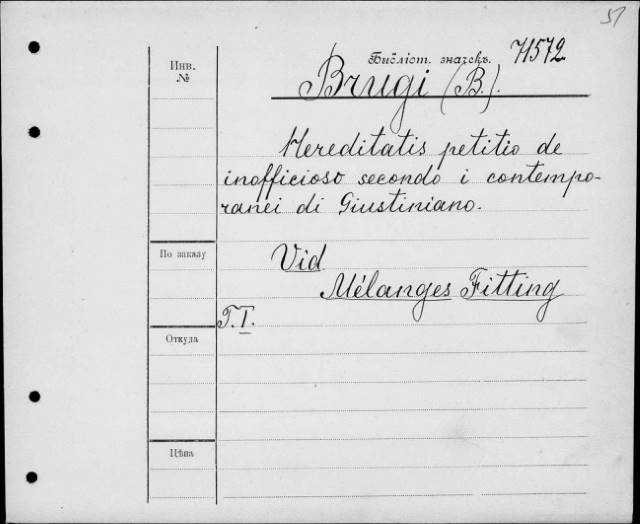 51
Инв.
№
Библіот. значекъ. 71572
Brugi (B.).
Hereditatis petitio de
inofficioso secondo i contempo-
ranei di Giustiniano.
По заказу
Vid
Mélanges Fitting
T. I.
Откуда
Цѣна